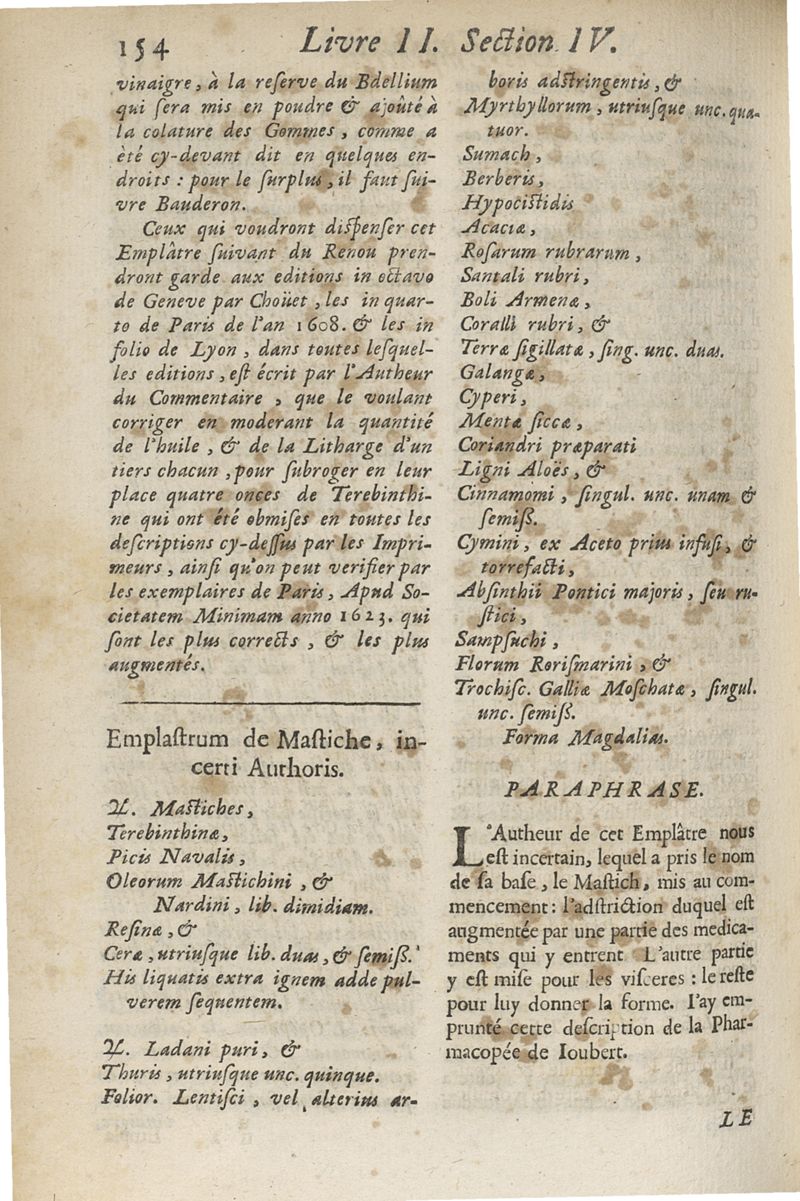 154 Livre II. Section IV.
vinaigre, à la reſerve du Bdellium
qui ſera mis en poudre & ajoûté à
la colature des Gommes, comme a
èté cy-devant dit en quelques en-
droits : pour le ſurplus, il faut ſui-
vre Bauderon.
Ceux qui voudront diſpenſer cet
Emplâtre ſuivant du Renou pren-
dront garde aux editions in octavo
de Geneve par Choüet, les in quar-
to de Paris de l'an 1608. & les in
folio de Lyon, dans toutes leſquel-
les editions, eſt écrit par l'Autheur
du Commentaire, que le voulant
corriger en moderant la quantité
de l'huile, & de la Litharge d'un
tiers chacun, pour ſubroger en leur
place quatre onces de Terebinthi-
ne qui ont été obmiſes en toutes les
deſcriptions cy-deſſus par les Impri-
meurs, ainſi qu'on peut verifier par
les exemplaires de Paris, Apud So-
cietatem Minimam anno 1623. qui
ſont les plus corrects, & les plus
augmentés.
Emplaſtrum de Maſtiche, in-
certi Authoris.
♃. Maſtiches,
Terebinthinæ,
Picis Navalis,
Oleorum Maſtichini, &
Nardini, lib. dimidiam.
Reſinæ, &
Ceræ, utriuſque lib. duas, & ſemiß.
His liquatis extra ignem adde pul-
verem ſequentem.
♃. Ladani puri, &
Thuris, utriuſque unc. quinque.
Folior. Lentiſci, vel alterius ar-
boris adſtringentis, &
Myrthyllorum, utriuſque unc. qua-
tuor.
Sumach,
Berberis,
Hypociſtidis
Acaciæ,
Roſarum rubrarum,
Santali rubri,
Boli Armenæ,
Coralli rubri, &
Terræ ſigillatæ, ſing. unc. duas.
Galangæ,
Cyperi,
Mentæ ſiccæ,
Coriandri præparati
Ligni Aloës, &
Cinnamomi, ſingul. unc. unam &
ſemiß.
Cymini, ex Aceto prius infuſi, &
torrefacti,
Abſinthii Pontici majoris, ſeu ru-
ſtici,
Sampſuchi,
Florum Roriſmarini, &
Trochiſc. Galliæ Moſchatæ, ſingul.
unc. ſemiß.
Forma Magdalias.
PARAPHRASE.
L'Autheur de cet Emplâtre nous
eſt incertain, lequel a pris le nom
de ſa baſe, le Maſtich, mis au com-
mencement : l'adſtriction duquel eſt
augmentée par une partie des medica-
ments qui y entrent L'autre partie
y eſt miſe pour les viſceres : le reſte
pour luy donner la forme. I'ay em-
prunté cette deſcription de la Phar-
macopée de Ioubert.
LE